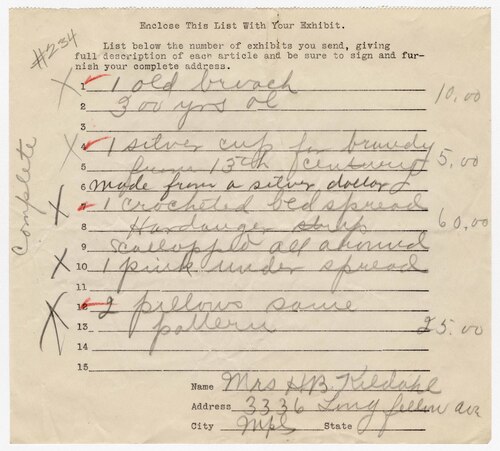 Enclose This List With Your Exhibit.
#234
List below the number of exhibits you send, giving
full description of each article and be sure to sign and fur-
nish your complete address.
1 1 old broach 10.00
2 300 yrs ol
3
4 1 silver cup for brandy 5.00
5 from 13th century
6 made from a silver dollar
7 1 crocheted bed spread 60.00
8 Hardanger
9 scallopped all around
10 1 pink under spread
11
12 2 pillows same
13 pattern 25.00
14
15
Complete
Name Mrs H.B. Kildahl
Address 3336 Longfellow ave
City Mpls State